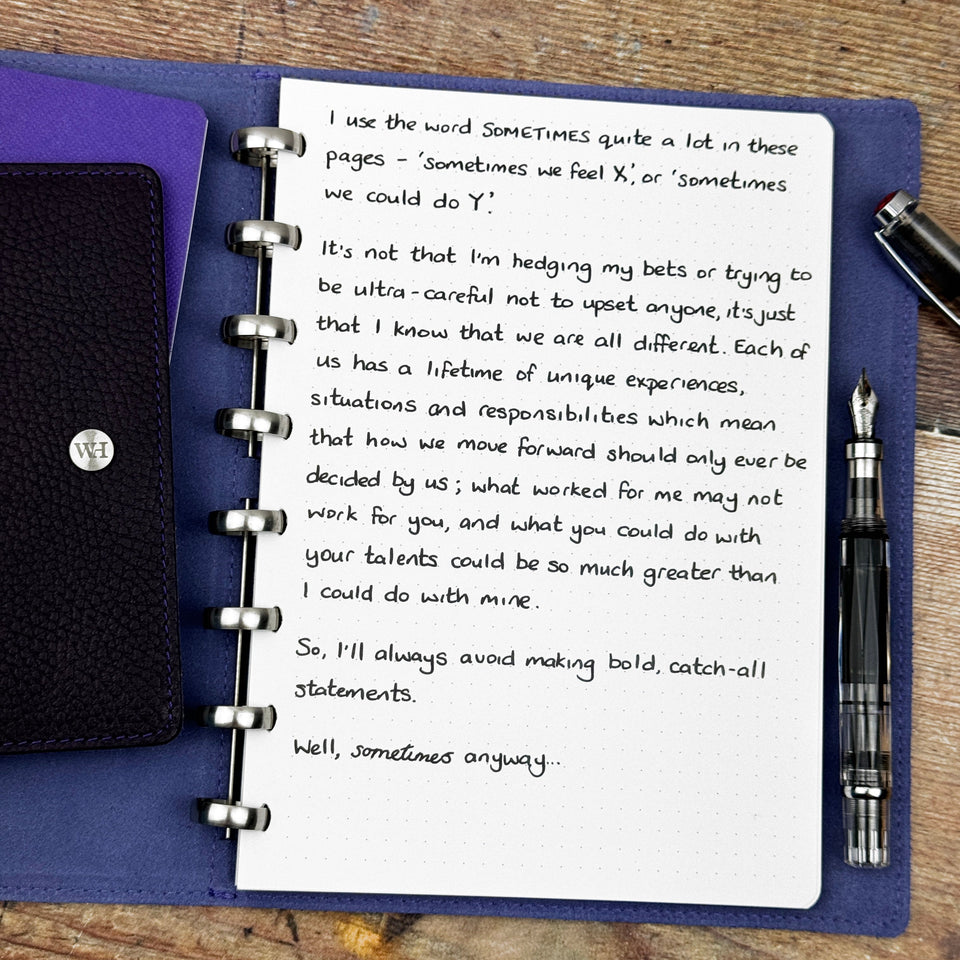 I use the word SOMETIMES quite a lot in these
pages - 'sometimes we feel X', or 'sometimes
we could do Y'.
It's not that I'm hedging my bets or trying to
be ultra-careful not to upset anyone, it's just
that I know that we are all different. Each of
us has a lifetime of unique experiences,
situations and responsibilities which mean
that how we move forward should only ever be
decided by us; what worked for me may not
work for you, and what you could do with
your talents could be so much greater than
I could do with mine.
So, I'll always avoid making bold, catch-all
statements.
Well, sometimes anyway...
WH